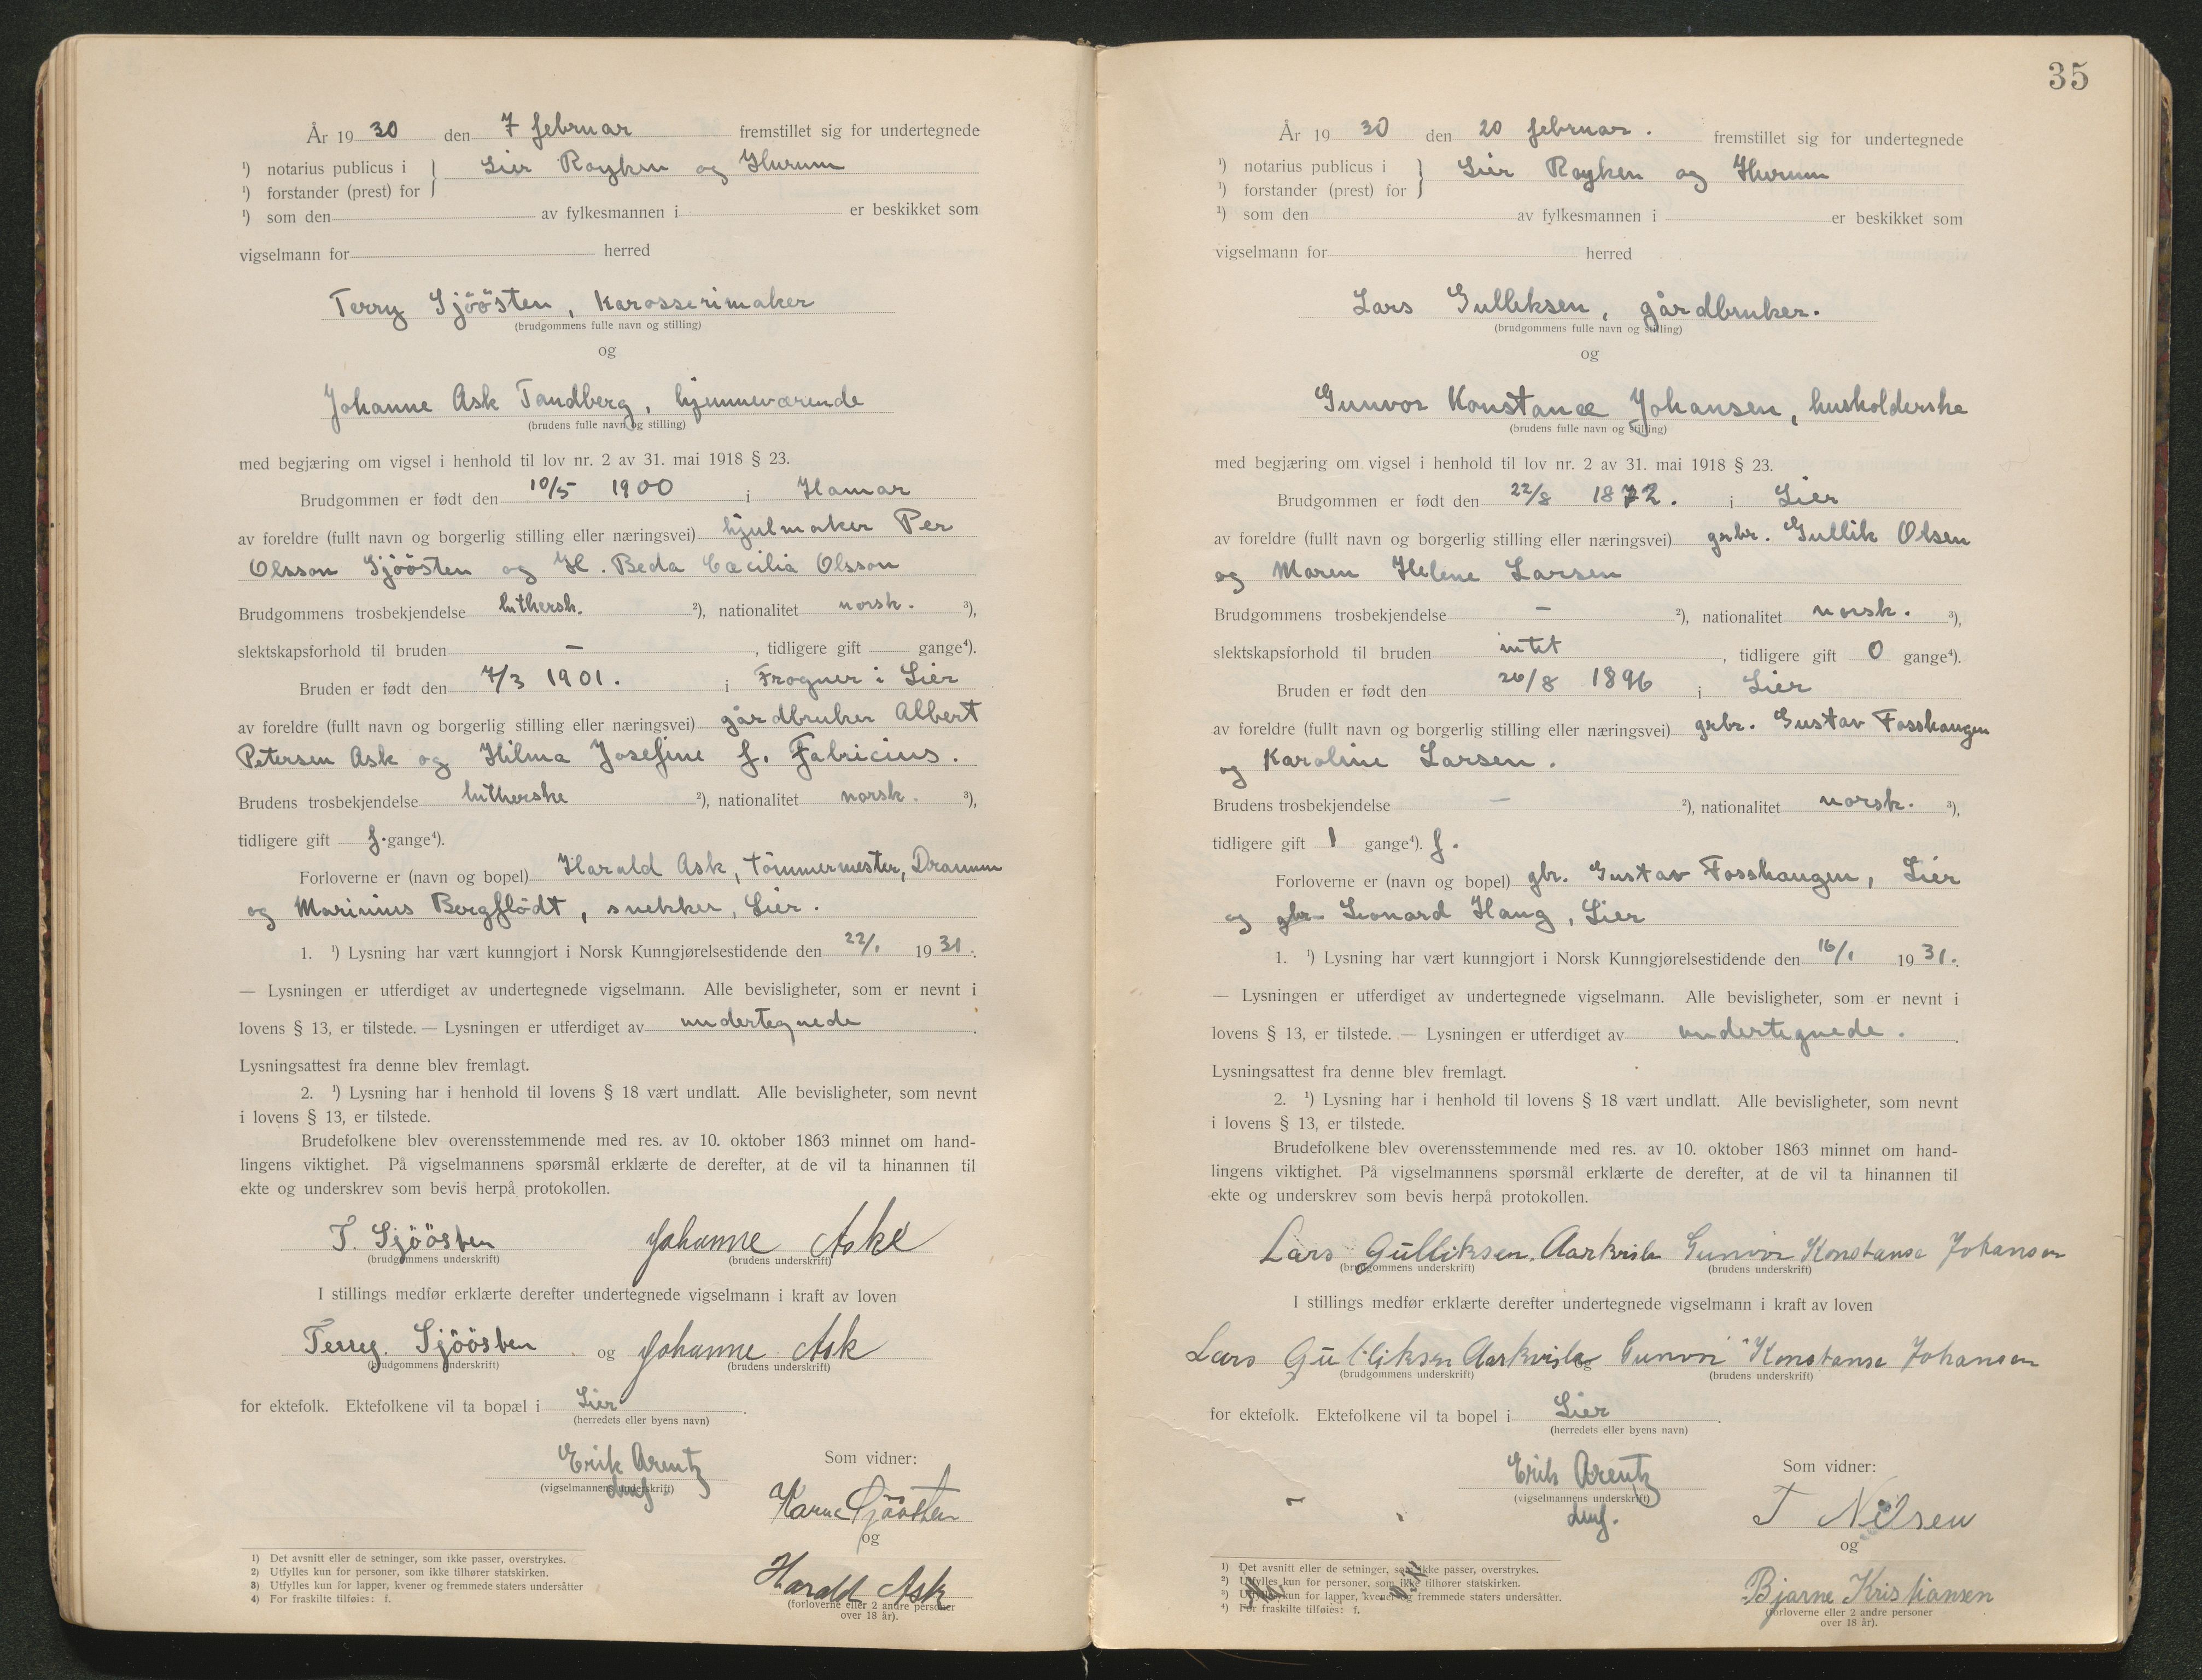 År 1930 den 7 februar fremstillet sig for undertegnede
¹) notarius publicus i } Lier Røyken og Hurum
¹) forstander (prest) for
¹) som den av fylkesmannen i er beskikket som
vigselmann for herred
Terry Sjöösten, Karosserimaker
(brudgommens fulle navn og stilling)
og
Johanne Ask Tandberg, hjemmeværende
(brudens fulle navn og stilling)
med begjæring om vigsel i henhold til lov nr. 2 av 31. mai 1918 § 23.
Brudgommen er født den 10/5 1900 i Hamar
av foreldre (fullt navn og borgerlig stilling eller næringsvei) hjulmaker Per
Olsson Sjöösten og H. Beda Cæcilia Olsson
Brudgommens trosbekjendelse luthersk. ²), nationalitet norsk. ³),
slektskapsforhold til bruden – , tidligere gift gange⁴).
Bruden er født den 7/3 1901. i Frogner i Lier
av foreldre (fullt navn og borgerlig stilling eller næringsvei) gårdbruker Albert
Petersen Ask og Hilma Josefine f. Fabricius.
Brudens trosbekjendelse lutherske ²), nationalitet norsk. ³),
tidligere gift f. gange⁴).
Forloverne er (navn og bopel) Harald Ask, tömmermester, Drammen
og Marinius Bergflödt, snekker, Lier.
1. ¹) Lysning har vært kunngjort i Norsk Kunngjørelsestidende den 22/1 1931.
— Lysningen er utferdiget av undertegnede vigselmann. Alle bevisligheter, som er nevnt i
lovens § 13, er tilstede. — Lysningen er utferdiget av undertegnede.
Lysningsattest fra denne blev fremlagt.
2. ¹) Lysning har i henhold til lovens § 18 vært undlatt. Alle bevisligheter, som nevnt
i lovens § 13, er tilstede.
Brudefolkene blev overensstemmende med res. av 10. oktober 1863 minnet om hand-
lingens viktighet. På vigselmannens spørsmål erklærte de derefter, at de vil ta hinannen til
ekte og underskrev som bevis herpå protokollen.
T. Sjöösten Johanne Aske
(brudgommens underskrift) (brudens underskrift)
I stillings medfør erklærte derefter undertegnede vigselmann i kraft av loven
Terry Sjöösten og Johanne Ask
(brudgommens underskrift) (brudens underskrift)
for ektefolk. Ektefolkene vil ta bopæl i Lier.
(herredets eller byens navn)
Erik Arentz Som vidner:
(vigselmannens underskrift)
Karne Sjöösten
og
Harald Ask
(forloverne eller 2 andre personer
over 18 år).
1) Det avsnitt eller de setninger, som ikke passer, overstrykes.
2) Utfylles kun for personer, som ikke tilhører statskirken.
3) Utfylles kun for lapper, kvener og fremmede staters undersåtter
4) For fraskilte tilføies: f.
35
År 1930 den 20 februar. fremstillet sig for undertegnede
¹) notarius publicus i } Lier Røyken og Hurum
¹) forstander (prest) for
¹) som den av fylkesmannen i er beskikket som
vigselmann for herred
Lars Gulliksen, gårdbruker.
(brudgommens fulle navn og stilling)
og
Gunvor Konstance Johansen, husholderske
(brudens fulle navn og stilling)
med begjæring om vigsel i henhold til lov nr. 2 av 31. mai 1918 § 23.
Brudgommen er født den 22/8 1872. i Lier
av foreldre (fullt navn og borgerlig stilling eller næringsvei) grbr. Gullik Olsen
og Maren Helene Larsen
Brudgommens trosbekjendelse – ²), nationalitet norsk. ³),
slektskapsforhold til bruden intet , tidligere gift 0 gange⁴).
Bruden er født den 26/8 1896 i Lier
av foreldre (fullt navn og borgerlig stilling eller næringsvei) grbr. Gustav Fosshaugen
og Karoline Larsen.
Brudens trosbekjendelse – ²), nationalitet norsk. ³),
tidligere gift 1 gange⁴). f.
Forloverne er (navn og bopel) gbr. Gustav Fosshaugen, Lier
og gbr Leonard Haug, Lier
1. ¹) Lysning har vært kunngjort i Norsk Kunngjørelsestidende den 16/1 1931.
— Lysningen er utferdiget av undertegnede vigselmann. Alle bevisligheter, som er nevnt i
lovens § 13, er tilstede. — Lysningen er utferdiget av undertegnede.
Lysningsattest fra denne blev fremlagt.
2. ¹) Lysning har i henhold til lovens § 18 vært undlatt. Alle bevisligheter, som nevnt
i lovens § 13, er tilstede.
Brudefolkene blev overensstemmende med res. av 10. oktober 1863 minnet om hand-
lingens viktighet. På vigselmannens spørsmål erklærte de derefter, at de vil ta hinannen til
ekte og underskrev som bevis herpå protokollen.
Lars Gulliksen Aarkvisla Gunvor Konstanse Johansen
(brudgommens underskrift) (brudens underskrift)
I stillings medfør erklærte derefter undertegnede vigselmann i kraft av loven
Lars Gulliksen Aarkvisla og Gunvor Konstanse Johansen
(brudgommens underskrift) (brudens underskrift)
for ektefolk. Ektefolkene vil ta bopel i Lier.
(herredets eller byens navn)
Erik Arentz Som vidner:
(vigselmannens underskrift)
T Nilsen
og
Bjarne Kristiansen
(forloverne eller 2 andre personer
over 18 år).
1) Det avsnitt eller de setninger, som ikke passer, overstrykes.
2) Utfylles kun for personer, som ikke tilhører statskirken.
3) Utfylles kun for lapper, kvener og fremmede staters undersåtter.
4) For fraskilte tilføies: f.